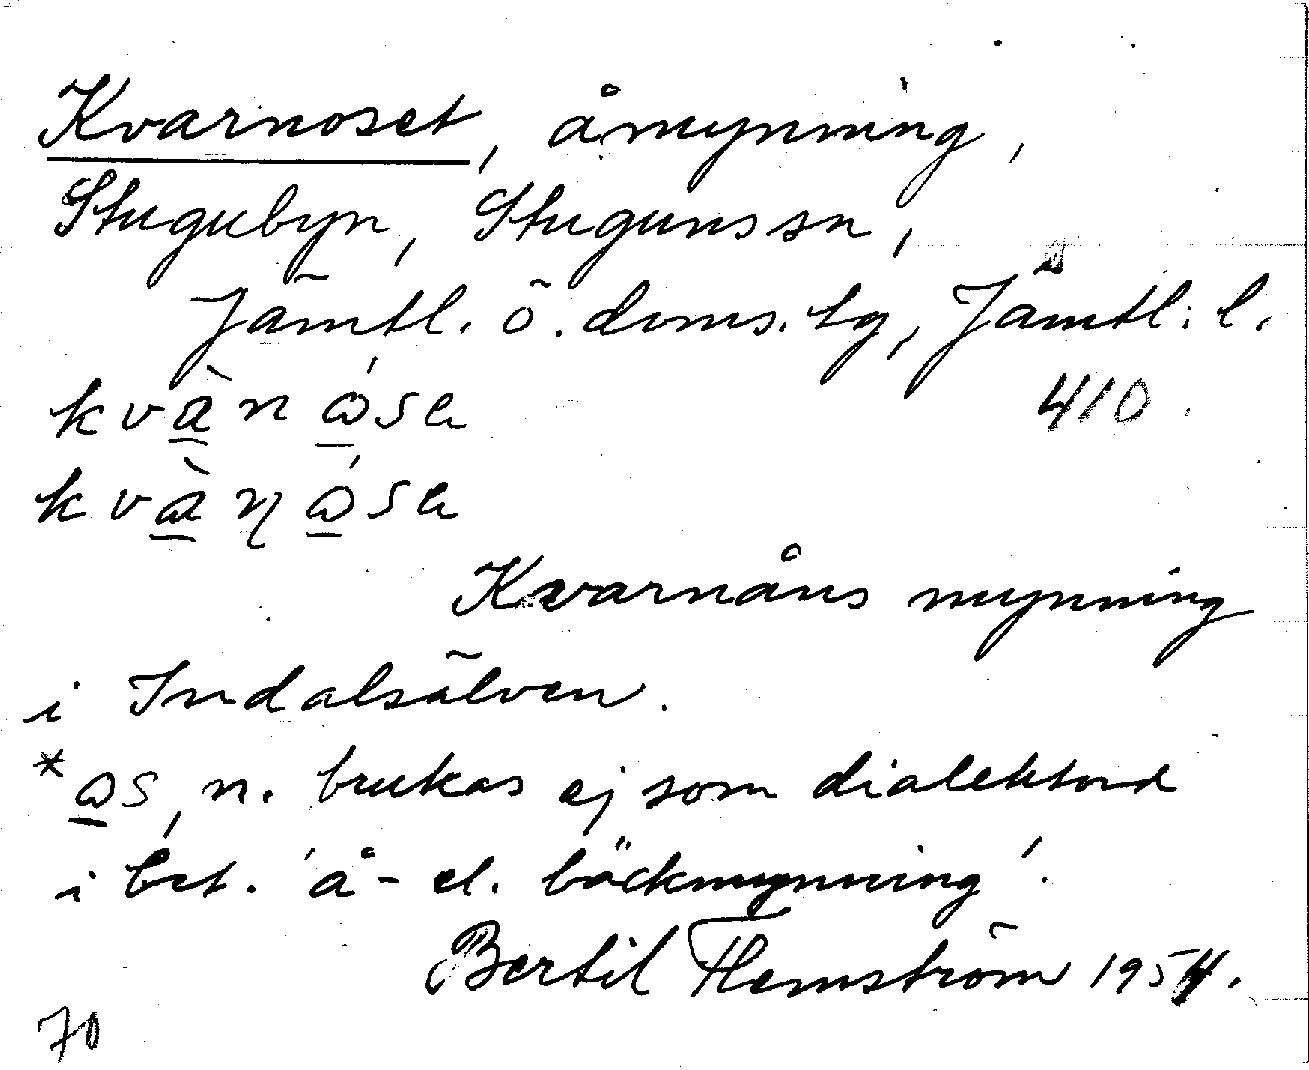 Kvarnoset, åmynning,
Stugubyn, Stuguns sn,
Jämtl. ö. doms. tg, Jämtl. l.
kvànósa 410.
kvàŋósa
Kvarnåns mynning
i Indalsälven.
*os, n. brukas ej som dialektord
i bet. 'å- el. bäckmynning'.
Bertil Flemström 1954.
70